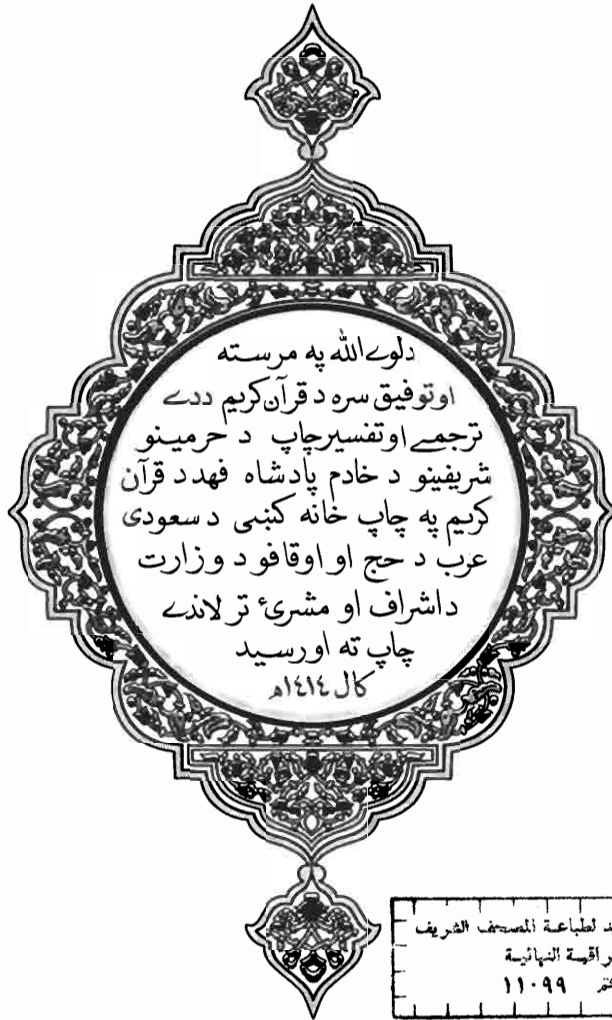 دلوے الله په مرسته
اوتوفیق سره د قرآن کریم ددے
ترجمے اوتفسیر چاپ د حرمینو
شریفینو د خادم پادشاه فهد د قرآن
کریم په چاپ خانه کښی د سعودی
عرب د حج او اوقافو د وزارت
داشراف او مشرئ تر لاندے
چاپ ته اورسید
کال ١٤١٤ھ
لطباعة المصحف الشريف
النهائية
١١٠٩٩